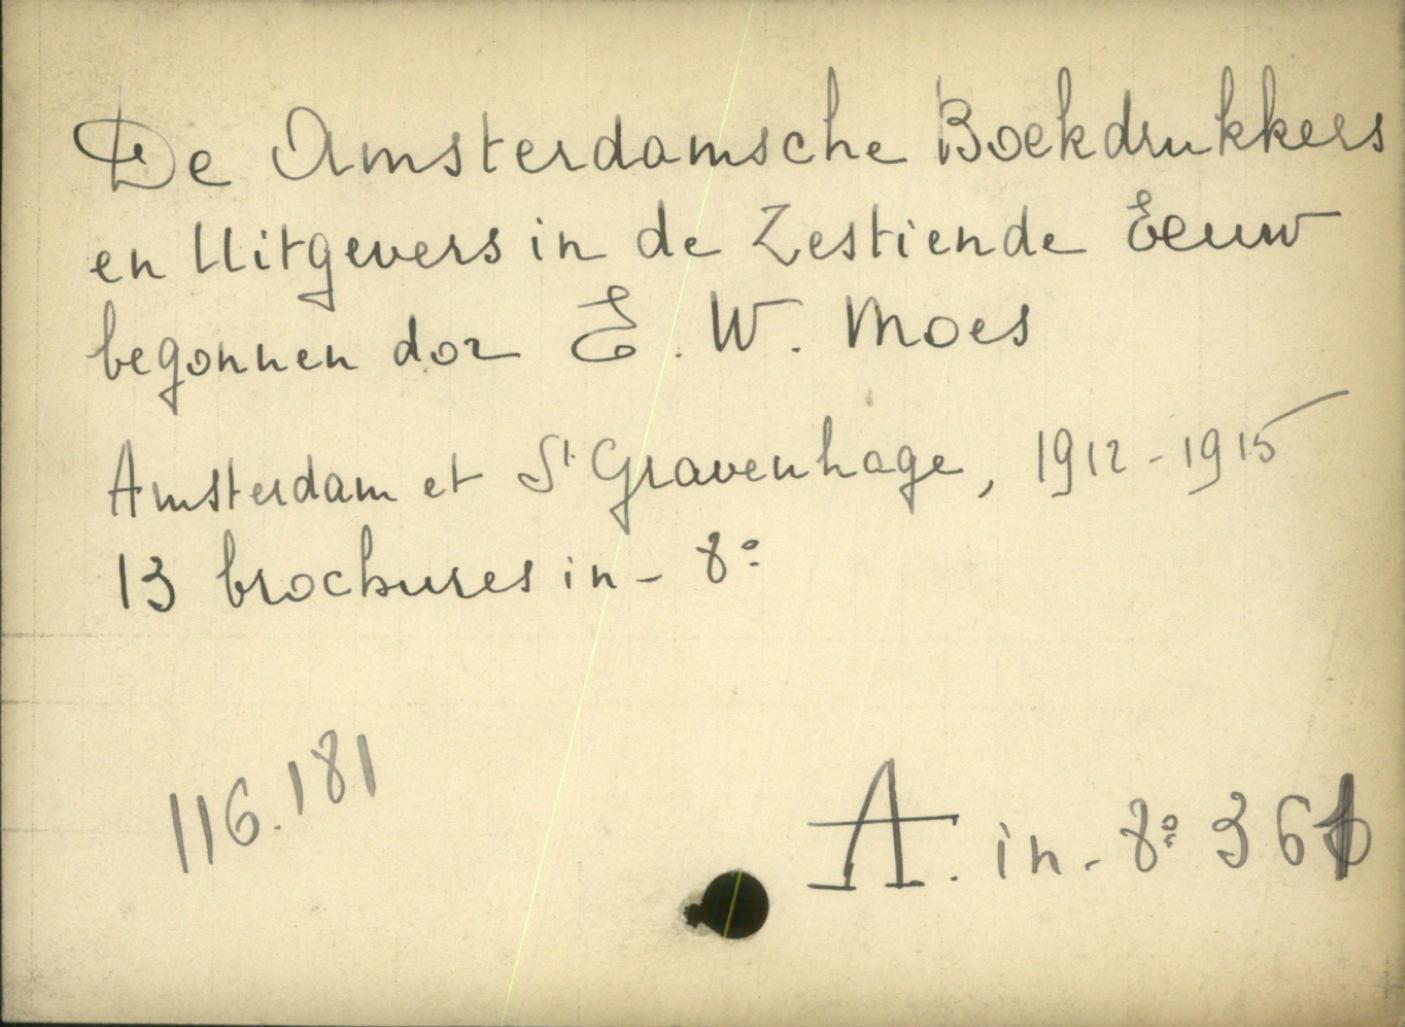 De Amsterdamsche Boekdrukkers
en Uitgevers in de Zestiende Eeuw
begonnen dor E. W. Moes
Amsterdam et St Gravenhage, 1912-1915
13 brochures in-8º
116.181
A. in-8º